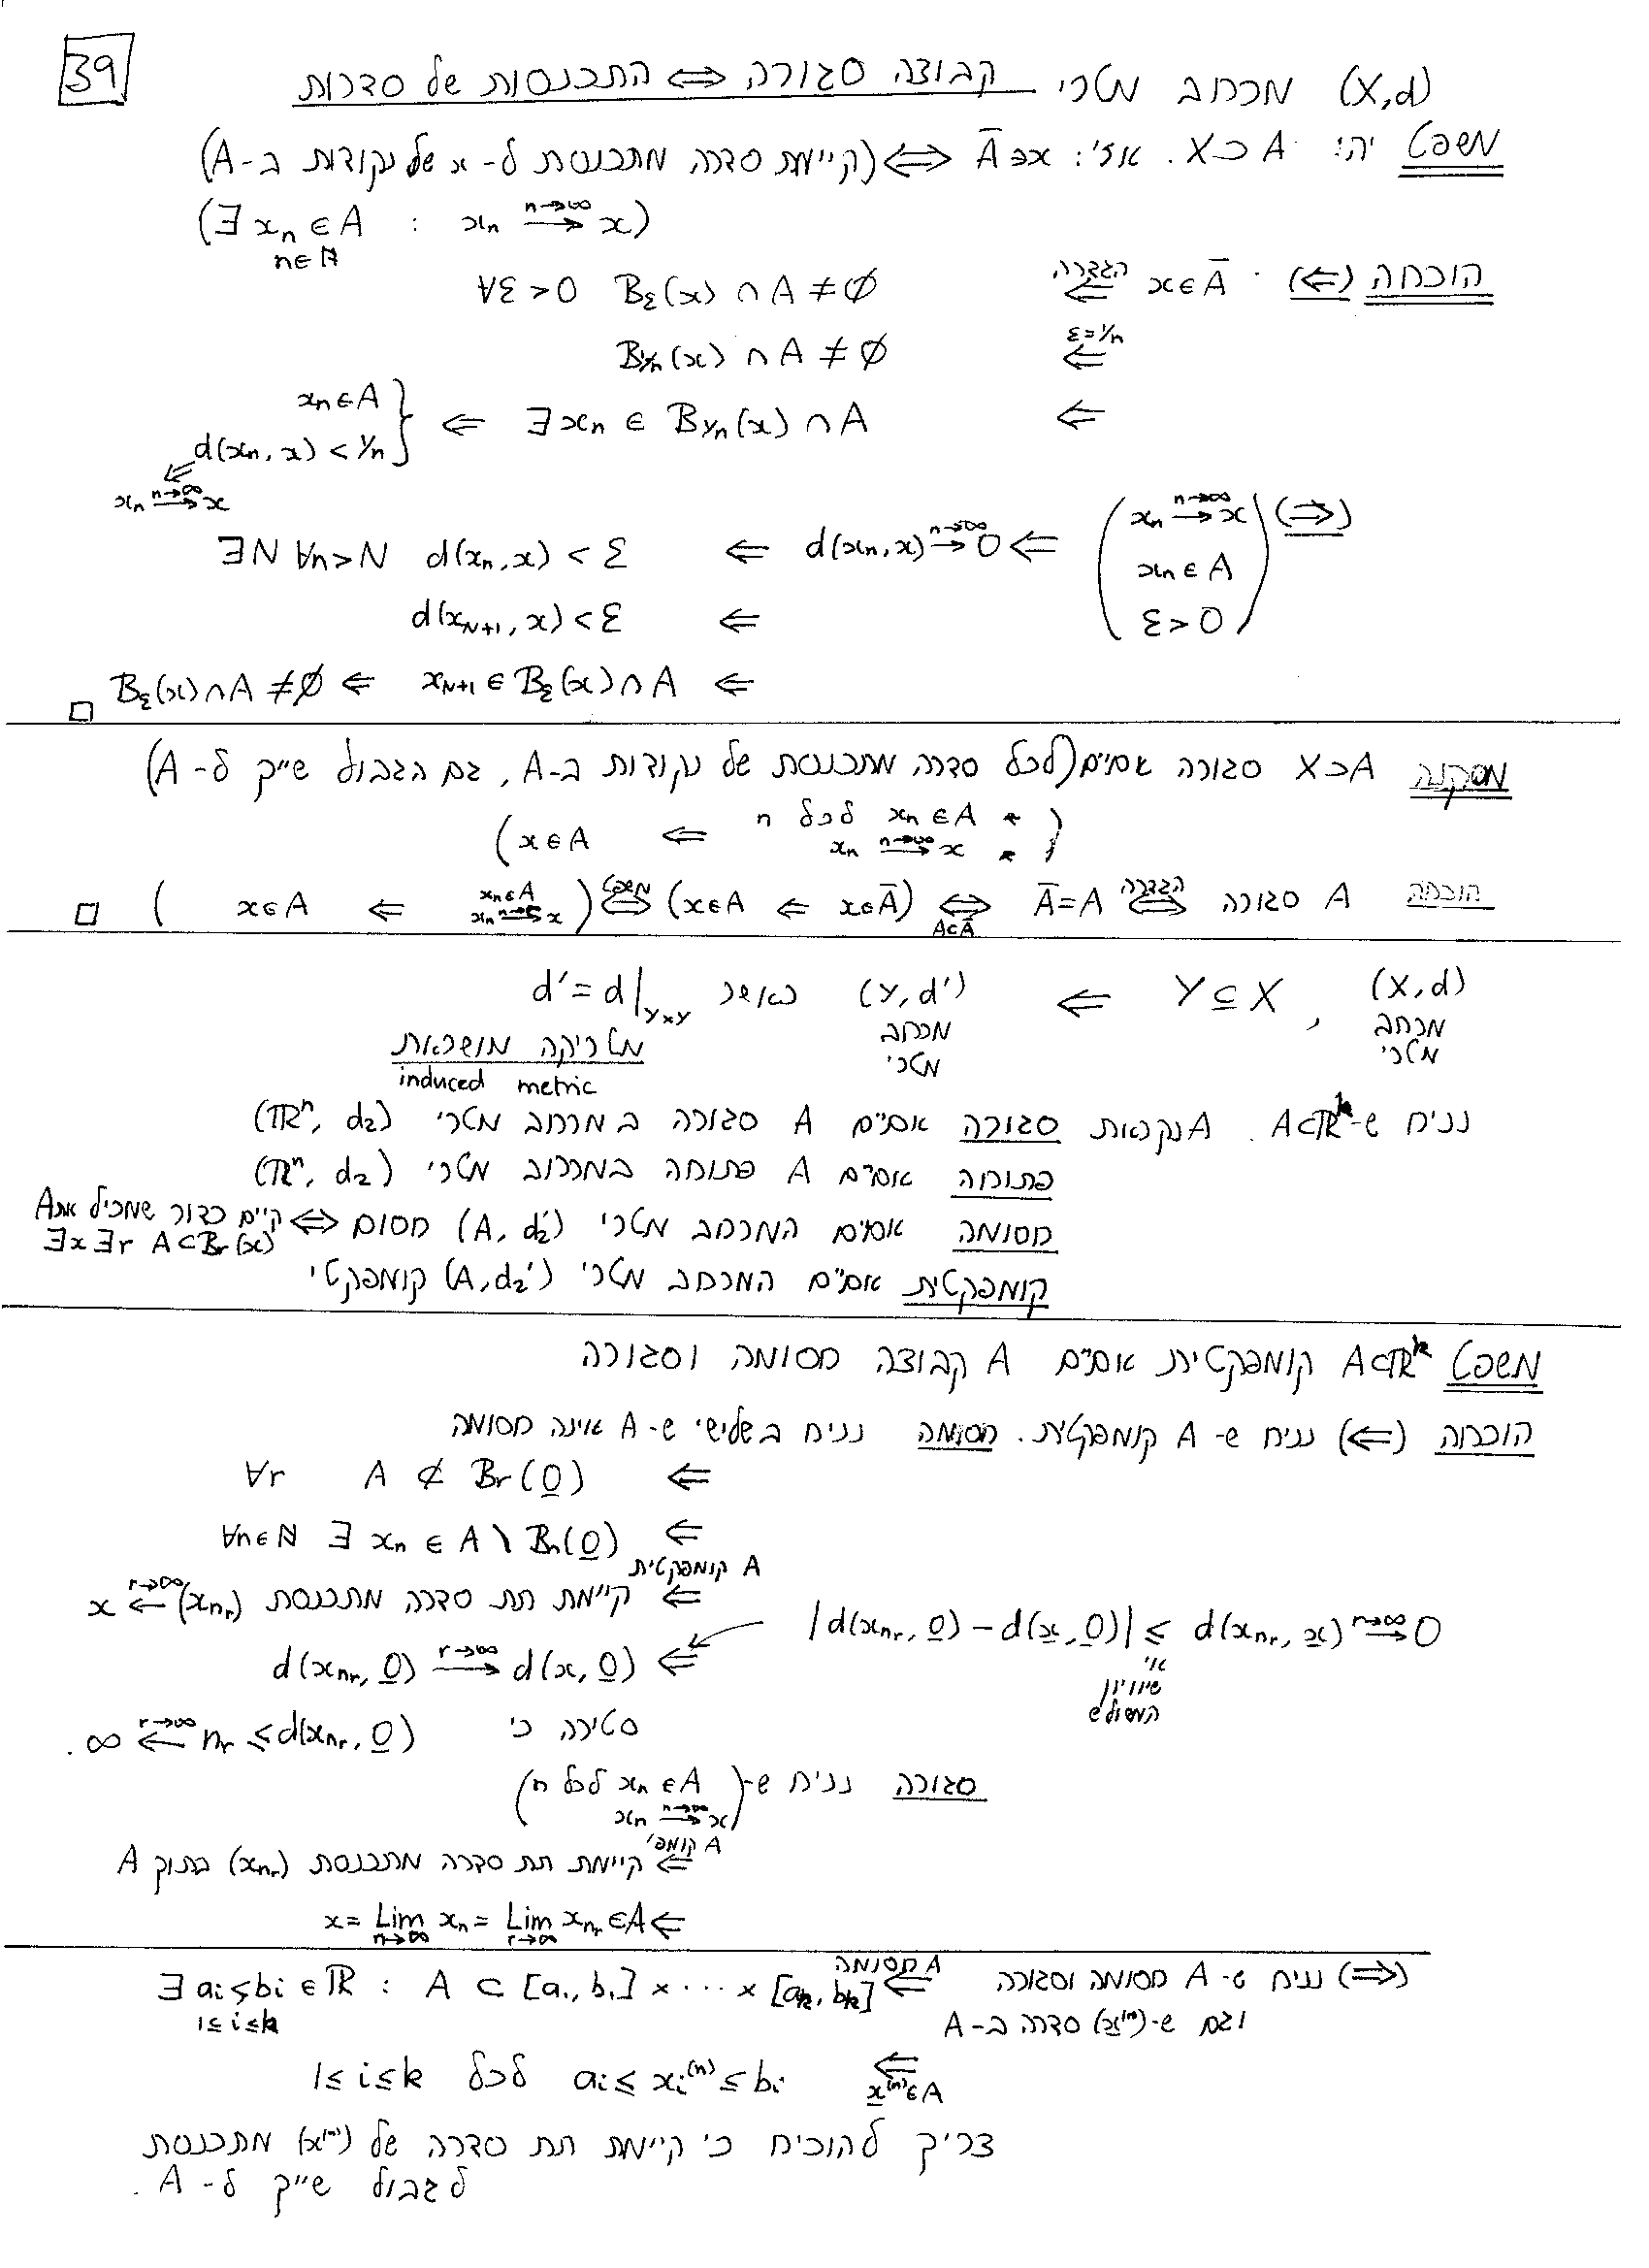 39
(X,d) מרחב מטרי קבוצה סגורה ⇔ התכנסות של סדרות
משפט יהי A⊂X. אזי: x∈Ā ⇔ (קיימת סדרה מתכנסת ל-x של נקודות ב-A)
(∃ xₙ ∈ A : xₙ →^{n→∞} x)
n∈ℕ
הוכחה (⇐) x∈Ā ⇐^{הגדרה} ∀ε>0 B_ε(x) ∩ A ≠ ∅
⇐^{ε=1/n} B_{1/n}(x) ∩ A ≠ ∅
⇐ ∃ xₙ ∈ B_{1/n}(x) ∩ A ⇐ { xₙ∈A
d(xₙ, x) < 1/n
xₙ →^{n→∞} x
(⇒) (xₙ →^{n→∞} x
xₙ ∈ A
ε>0) ⇐ d(xₙ,x) →^{n→∞} 0 ⇐ ∃N ∀n>N d(xₙ,x) < ε
⇐ d(x_{N+1}, x) < ε
⇐ x_{N+1} ∈ B_ε(x) ∩ A ⇐ B_ε(x) ∩ A ≠ ∅ □
מסקנה A⊂X סגורה אםים (לכל סדרה מתכנסת של נקודות ב-A, גם הגבול שייך ל-A)
( • xₙ ∈ A לכל n
• xₙ →^{n→∞} x ⇐ x∈A )
הוכחה A סגורה ⇔^{הגדרה} Ā=A ⇔_{A⊂Ā} (x∈Ā ⇐ x∈A) ⇔^{משפט} (xₙ∈A
xₙ →^{n→∞} x ⇐ x∈A) □
(X,d) , Y⊆X ⇐ (Y,d') כאשר d'=d|_{Y×Y}
מרחב מטרי מרחב מטרי מטריקה מושראת
induced metric
נניח ש-A⊂ℝᵏ. A נקראת סגורה אם״ם A סגורה במרחב מטרי (ℝⁿ, d₂)
פתוחה אם״ם A פתוחה במרחב מטרי (ℝⁿ, d₂)
חסומה אם״ם המרחב מטרי (A, d₂') חסום ⇔ קיים כדור שמכיל את A
∃x ∃r A⊂B_r(x)
קומפקטית אם״ם המרחב מטרי (A, d₂') קומפקטי
משפט A⊂ℝᵏ קומפקטית אם״ם A קבוצה חסומה וסגורה
הוכחה (⇐) נניח ש-A קומפקטית. חסומה נניח בשלישי ש-A אינה חסומה
⇐ A ⊄ B_r(0) ∀r
⇐ ∀n∈ℕ ∃ xₙ ∈ A \ Bₙ(0)
A קומפקטית
⇐ קיימת תת סדרה מתכנסת (x_{n_r}) →^{r→∞} x
|d(x_{n_r}, 0) - d(x, 0)| ≤ d(x_{n_r}, x) →^{r→∞} 0
אי שוויון המשולש
⇐ d(x_{n_r}, 0) →^{r→∞} d(x, 0)
סטירה כי ∞ ←^{r→∞} n_r ≤ d(x_{n_r}, 0).
סגורה נניח ש-(xₙ ∈ A לכל n
xₙ →^{n→∞} x)
A קומפ'
⇐ קיימת תת סדרה מתכנסת (x_{n_r}) בתוך A
⇐ x = Lim_{n→∞} xₙ = Lim_{r→∞} x_{n_r} ∈ A
(⇒) נניח ש-A חסומה וסגורה ⇐^{A חסומה} ∃ aᵢ≤bᵢ ∈ ℝ : A ⊂ [a₁, b₁] × ⋯ × [aₖ, bₖ]
1≤i≤k
וגם ש-(x⁽ⁿ⁾) סדרה ב-A
⇐_{x⁽ⁿ⁾∈A} aᵢ ≤ xᵢ⁽ⁿ⁾ ≤ bᵢ לכל 1≤i≤k
צריך להוכיח כי קיימת תת סדרה של (x⁽ⁿ⁾) מתכנסת
לגבול שייך ל-A.